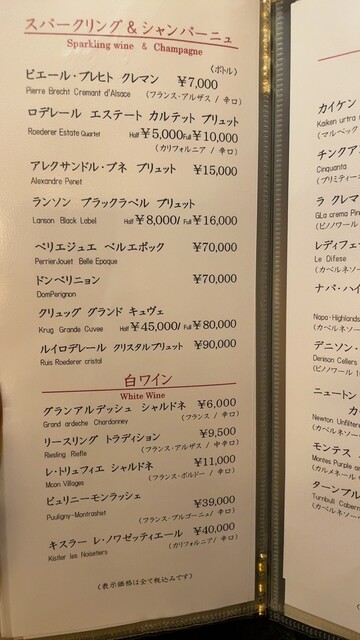 スパークリング＆シャンパーニュ
Sparkling wine & Champagne
〈ボトル〉
ピエール・ブレヒト クレマン ￥7,000
Pierre Brecht Cremant d'Alsace (フランス・アルザス / 辛口)
ロデレール エステート カルテット ブリュット
Roederer Estate Quartet Half￥5,000/Full￥10,000
(カリフォルニア / 辛口)
アレクサンドル・プネ ブリュット ￥15,000
Alexandre Penet
ランソン ブラックラベル ブリュット
Lanson Black Label Half￥8,000/ Full￥16,000
ペリエジュエ ベルエポック ￥70,000
PerrierJouet Belle Epoque
ドンペリニョン ￥70,000
DomPerignon
クリュッグ グランド キュヴェ
Krug Grande Cuvee Half￥45,000/ Full￥80,000
ルイロデレール クリスタルブリュット ￥90,000
Ruis Roederer cristal
白ワイン
White Wine
グランアルデッシュ シャルドネ ￥6,000
Grand ardeche Chardonney (フランス / 辛口)
リースリング トラディション ￥9,500
Riesling Riefle (フランス・アルザス / 中辛口)
レ・トリュフィエ シャルドネ ￥11,000
Moon Villages (フランス・ボルドー / 辛口)
ピュリニーモンラッシェ ￥39,000
Puuligny-Montrashet (フランス・ブルゴーニュ/ 辛口)
キスラー レ・ノワゼッティエール ￥40,000
Kistler les Noisetiers (カリフォルニア/ 辛口)
(表示価格は全て税込みです)
カイケン
Kaiken urtra
(マルベック
チンクア
Cinquanta
(プリミティー
ラ クレマ
GLa crema Pin
(ピノノワール
レディフェ
Le Difese
(カベルネソー
ナパ・ハイ
Napa・Highlands
(カベルネソー
デニソン・
Denison Cellers
(ピノノワール
ニュートン
カ
Newton Unfiltere
(カベルネソー
モンテス
Montes Purple an
(カルメネール
ターンブル
Turnbull Cabern
(カベルネソー